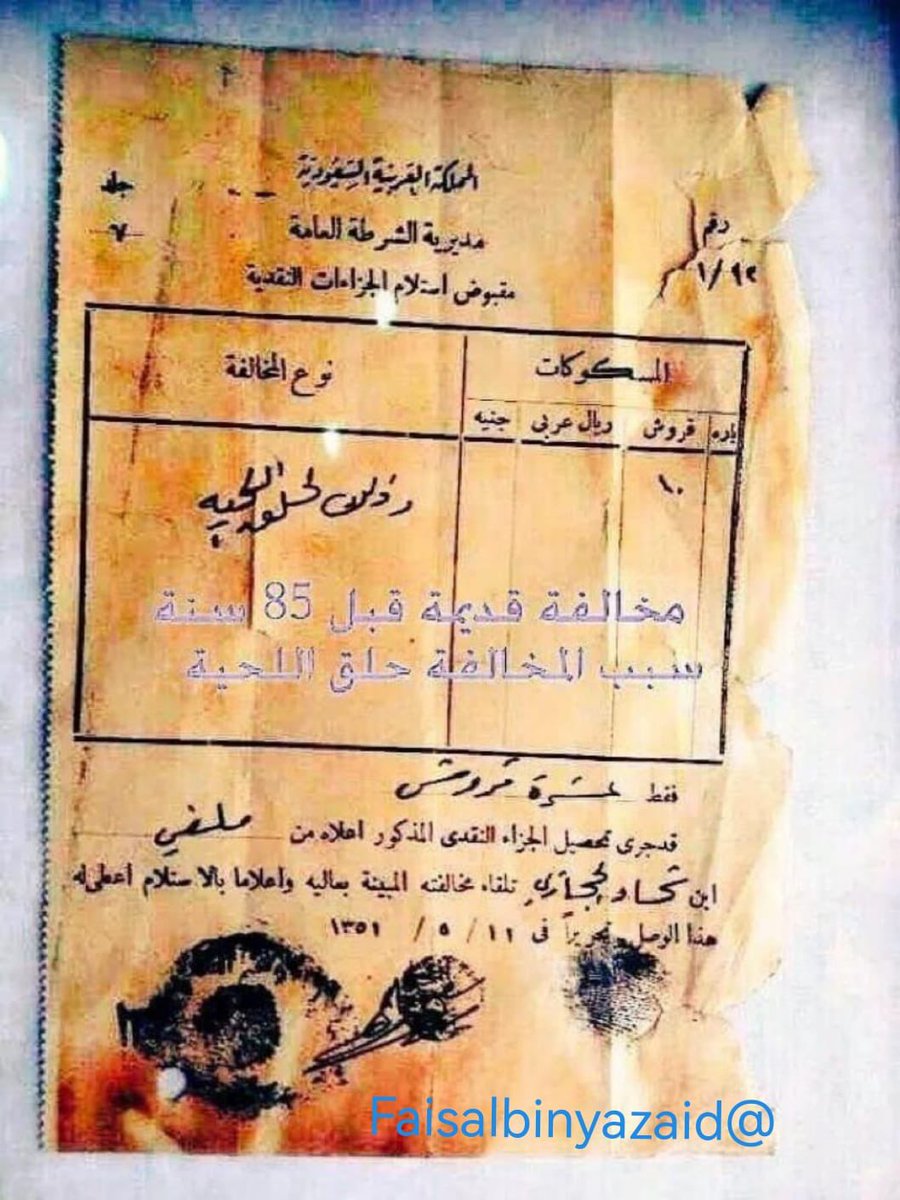 المملكة العربية السعودية
جلد
٧
مديرية الشرطة العامة
رقم
١/٩٢
مقبوض استلام الجزاءات النقدية
المسكوكات
نوع المخالفة
باره
قروش
ريال عربى
جنيه
١٠
وذلك لحلق اللحيه
مخالفة قديمة قبل 85 سنة
سبب المخالفة حلق اللحية
فقط عشرة قروش
قد جرى تحصيل الجزاء النقدى المذكور اعلاه من
ابن تلقاء مخالفته المبينة بعاليه واعلاما بالاستلام اعطى له
هذا الوصل تحريراً فى ١١ / ٥ / ١٣٥١
Faisalbinyazaid@